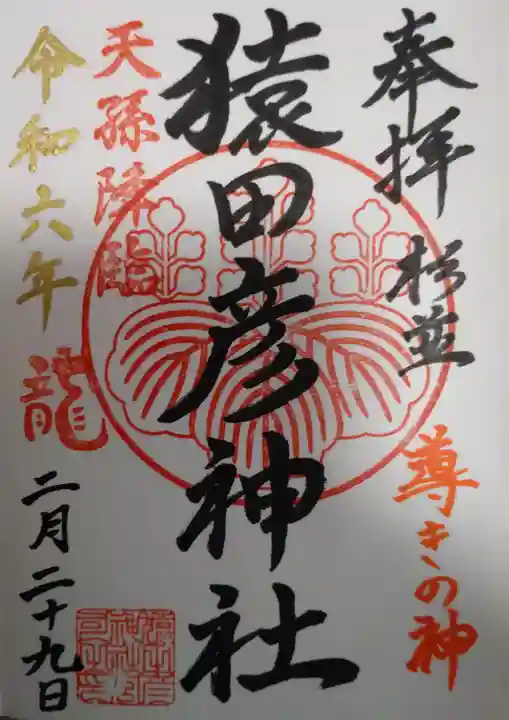 奉拝 松並
導きの神
猿田彦神社
天孫降臨
令和六年
龍
二月二十九日